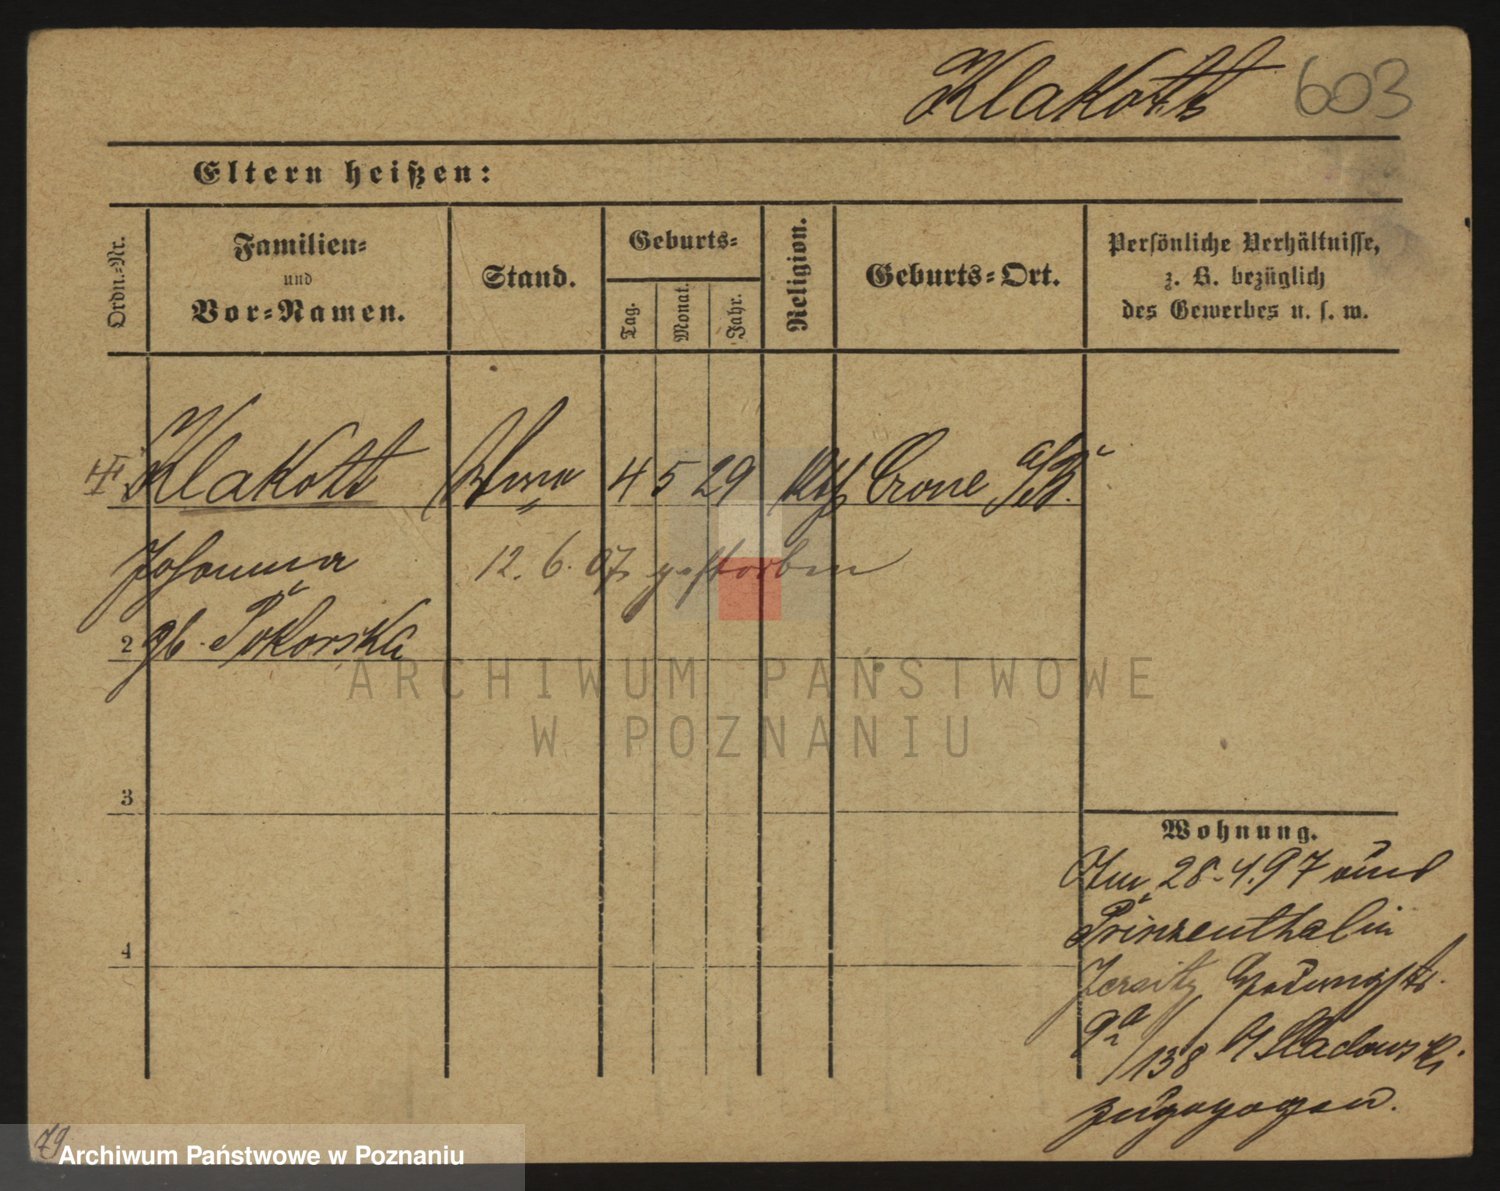 Klakott 603
Eltern heißen:
Ordn.-Nr.
Familien-
und
Vor-Namen.
Stand.
Geburts-
Tag.
Monat.
Jahr.
Religion.
Geburts-Ort.
Persönliche Verhältnisse,
z. B. bezüglich
des Gewerbes u. s. w.
Klakott Wwe 4 5 29 Kth Crone
Johanna 12. 6. 07 gestorben
2 gb. Pokorska
ARCHIWUM PAŃSTWOWE
W POZNANIU
3
4
Wohnung.
Am 28.4.97 aus
Prinzenthal in
Jersitz
9a/138 Sladowski
zugezogen.
79
Archiwum Państwowe w Poznaniu